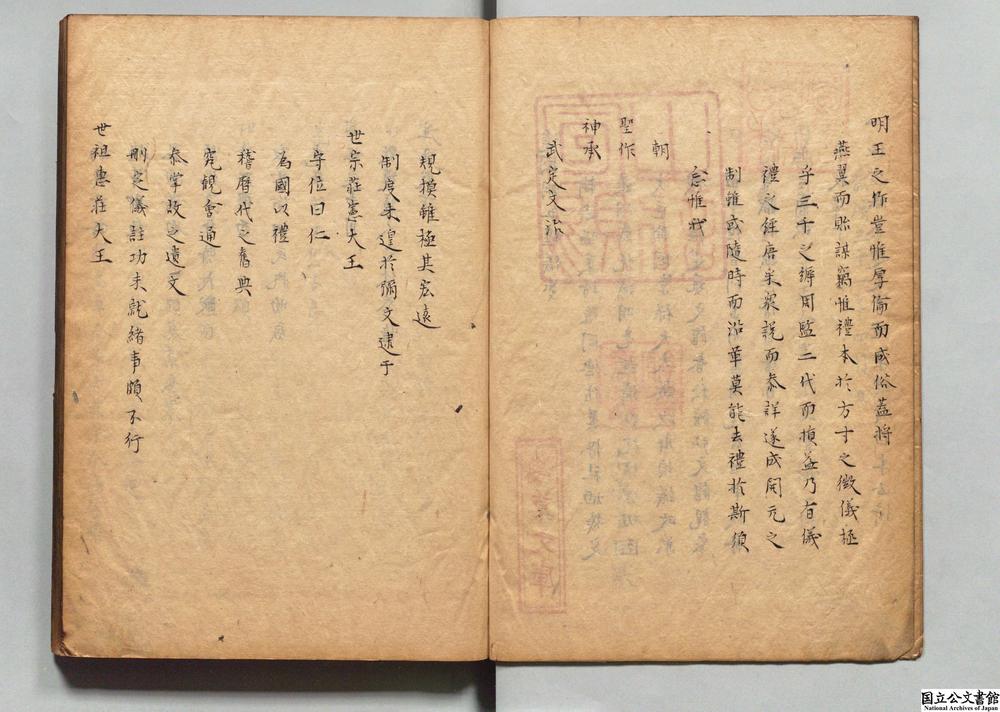 明王之作豈惟厚倫而成俗蓋將
燕翼而貽謀竊惟禮本於方寸之微儀極
乎三千之縟周監二代而損益乃有儀
禮之經唐采衆說而叅詳遂成開元之
制雖或隨時而沿革莫能去禮於斯須
恭惟我
朝
聖作
神承
武定文治
規模雖極其宏遠
制度未遑於彌文逮于
世宗莊憲大王
守位曰仁
為國以禮
稽曆代之舊典
究觀會通
叅掌故之遺文
刪定儀註功未就緒事頗不行
世祖惠莊大王
国立公文書館
National Archives of Japan